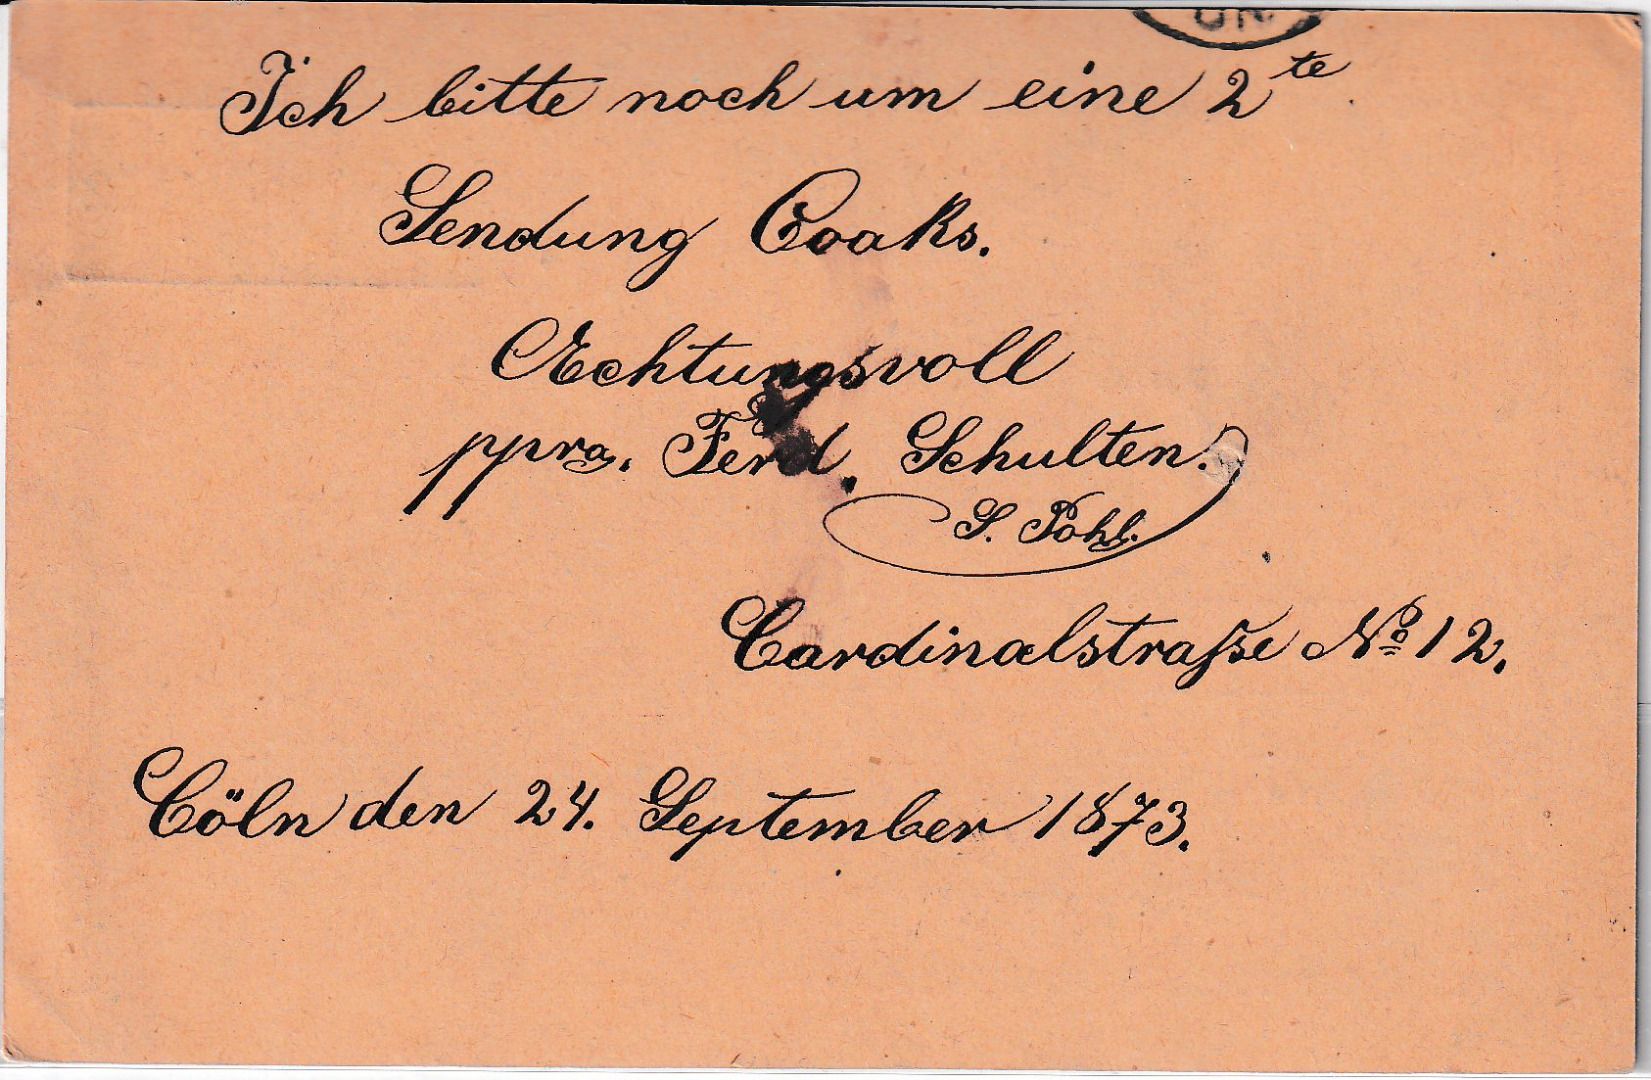 Ich bitte noch um eine 2te
Sendung Coaks.
Achtungsvoll
ppra. Ferd. Schulten.
S. Pohl.
Cardinalstraße No 12.
Cöln den 24. September 1873.